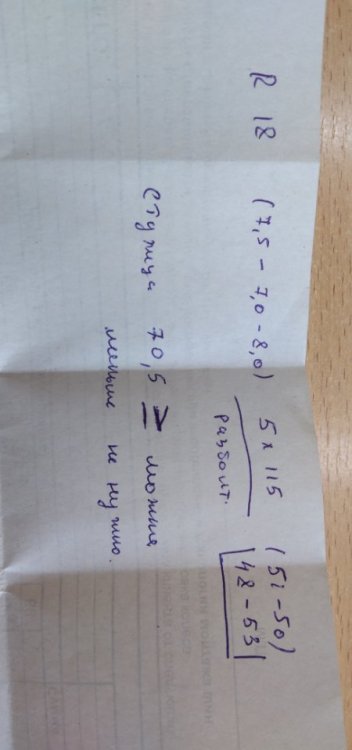 R 18 (7,5 - 7,0 - 8,0) 5 x 115 (51-50)
разболт. 48-53
ступица 70,5 ≥ можно
меньше не нужно.